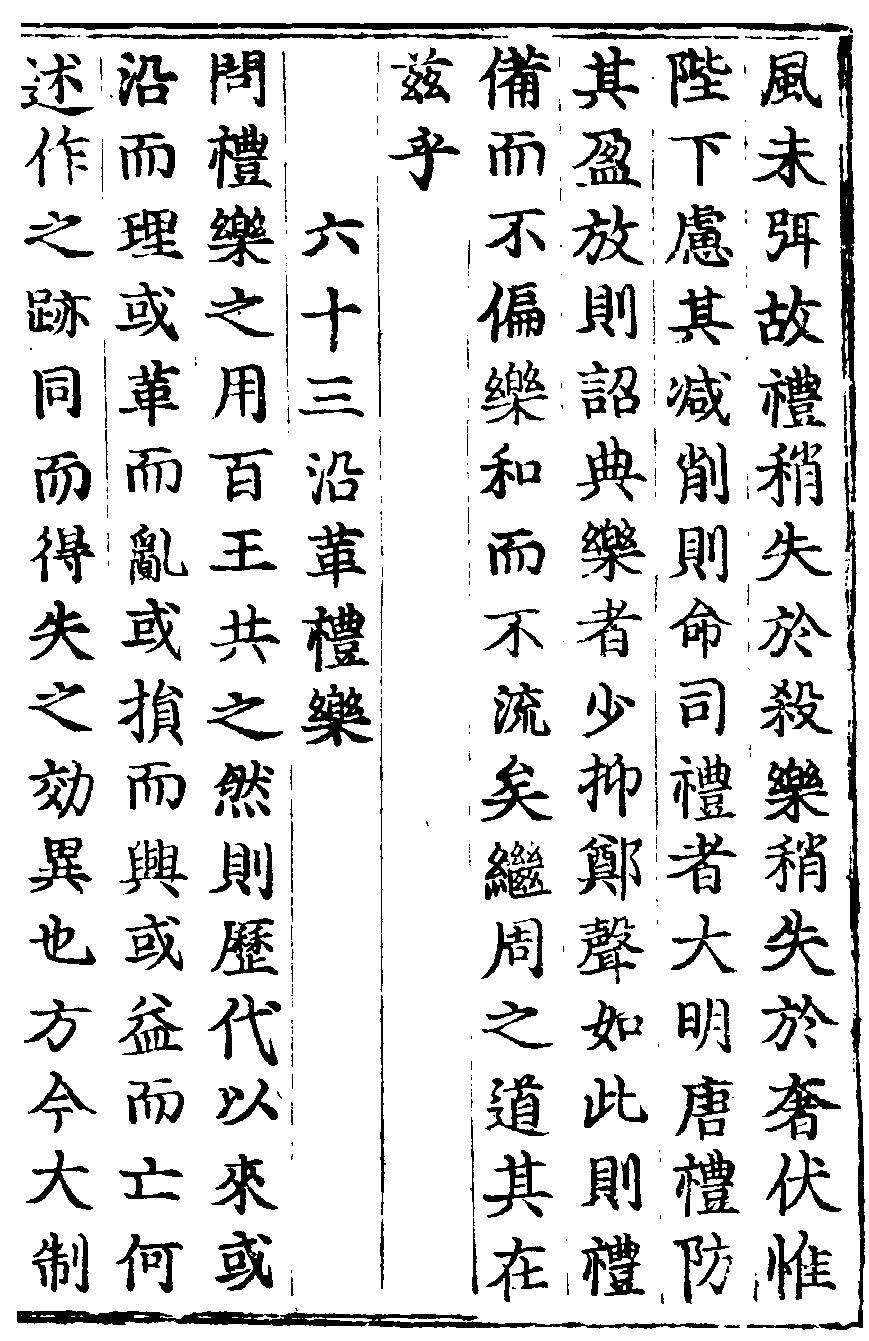 風未弭故禮稍失於殺樂稍失於奢伏惟
陛下慮其减削則命司禮者大明唐禮防
其盈放則詔典樂者少抑鄭聲如此則禮
備而不偏樂和而不流矣繼周之道其在
茲乎
六十三沿革禮樂
問禮樂之用百王共之然則歷代以來或
沿而理或革而亂或損而興或益而亡何
述作之跡同而得失之効異也方今大制